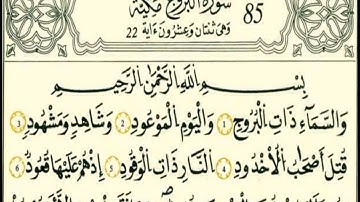 سورة البروج مكية 85
وهى ثنتان وعشرون ءاية 22
بِسْمِ اللَّهِ الرَّحْمَٰنِ الرَّحِيمِ
وَالسَّمَاءِ ذَاتِ الْبُرُوجِ 1 وَالْيَوْمِ الْمَوْعُودِ 2 وَشَاهِدٍ وَمَشْهُودٍ 3
قُتِلَ أَصْحَابُ الْأُخْدُودِ 4 النَّارِ ذَاتِ الْوَقُودِ 5 إِذْ هُمْ عَلَيْهَا قُعُودٌ 6